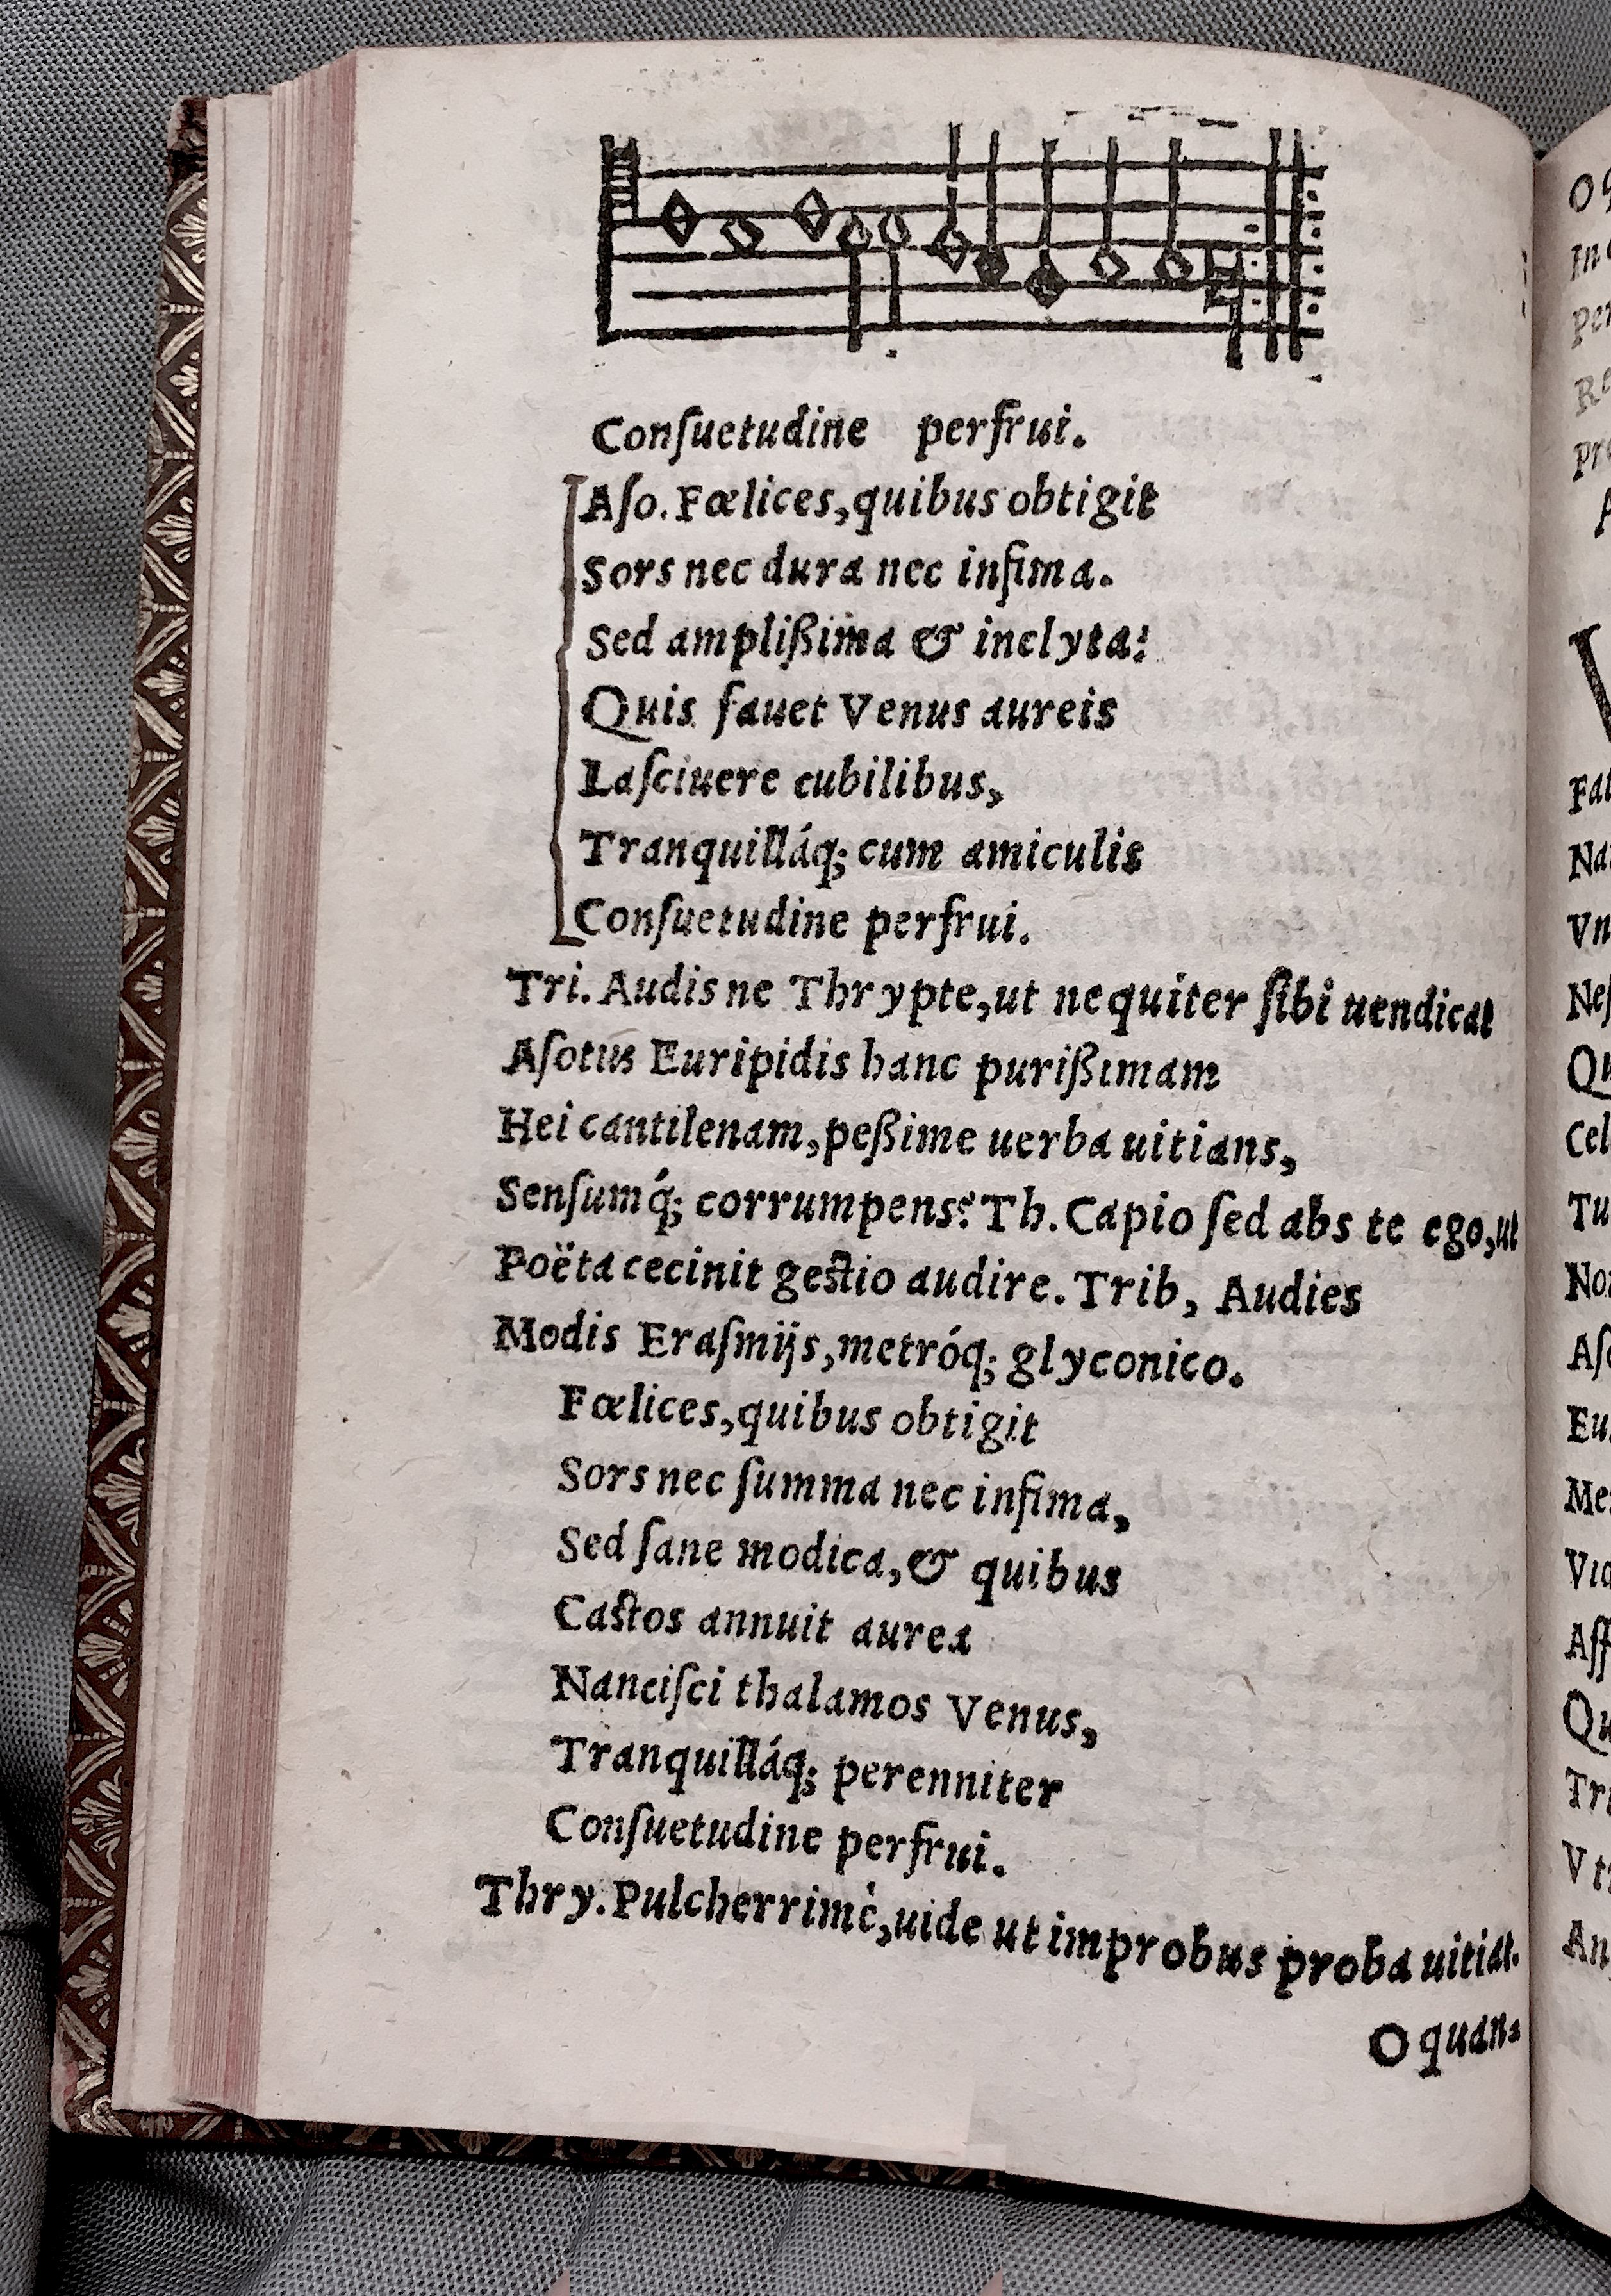 Conſuetudine perfrui.
Aſo. Fœlices, quibus obtigit
Sors nec dura nec infima.
Sed amplißima & inclyta:
Quis fauet Venus aureis
Laſciuere cubilibus,
Tranquilláq; cum amiculis
Conſuetudine perfrui.
Tri. Audis ne Thrypte, ut nequiter ſibi uendicat
Aſotus Euripidis hanc purißimam
Hei cantilenam, peßime uerba uitians,
Senſumq́; corrumpens? Th. Capio ſed abs te ego, ut
Poëta cecinit geſtio audire. Trib, Audies
Modis Eraſmijs, metróq; glyconico.
Fœlices, quibus obtigit
Sors nec ſumma nec infima,
Sed ſane modica, & quibus
Caſtos annuit aurea
Nanciſci thalamos Venus,
Tranquilláq; perenniter
Conſuetudine perfrui.
Thry. Pulcherrimè, uide ut improbus proba uitiat.
O quan-